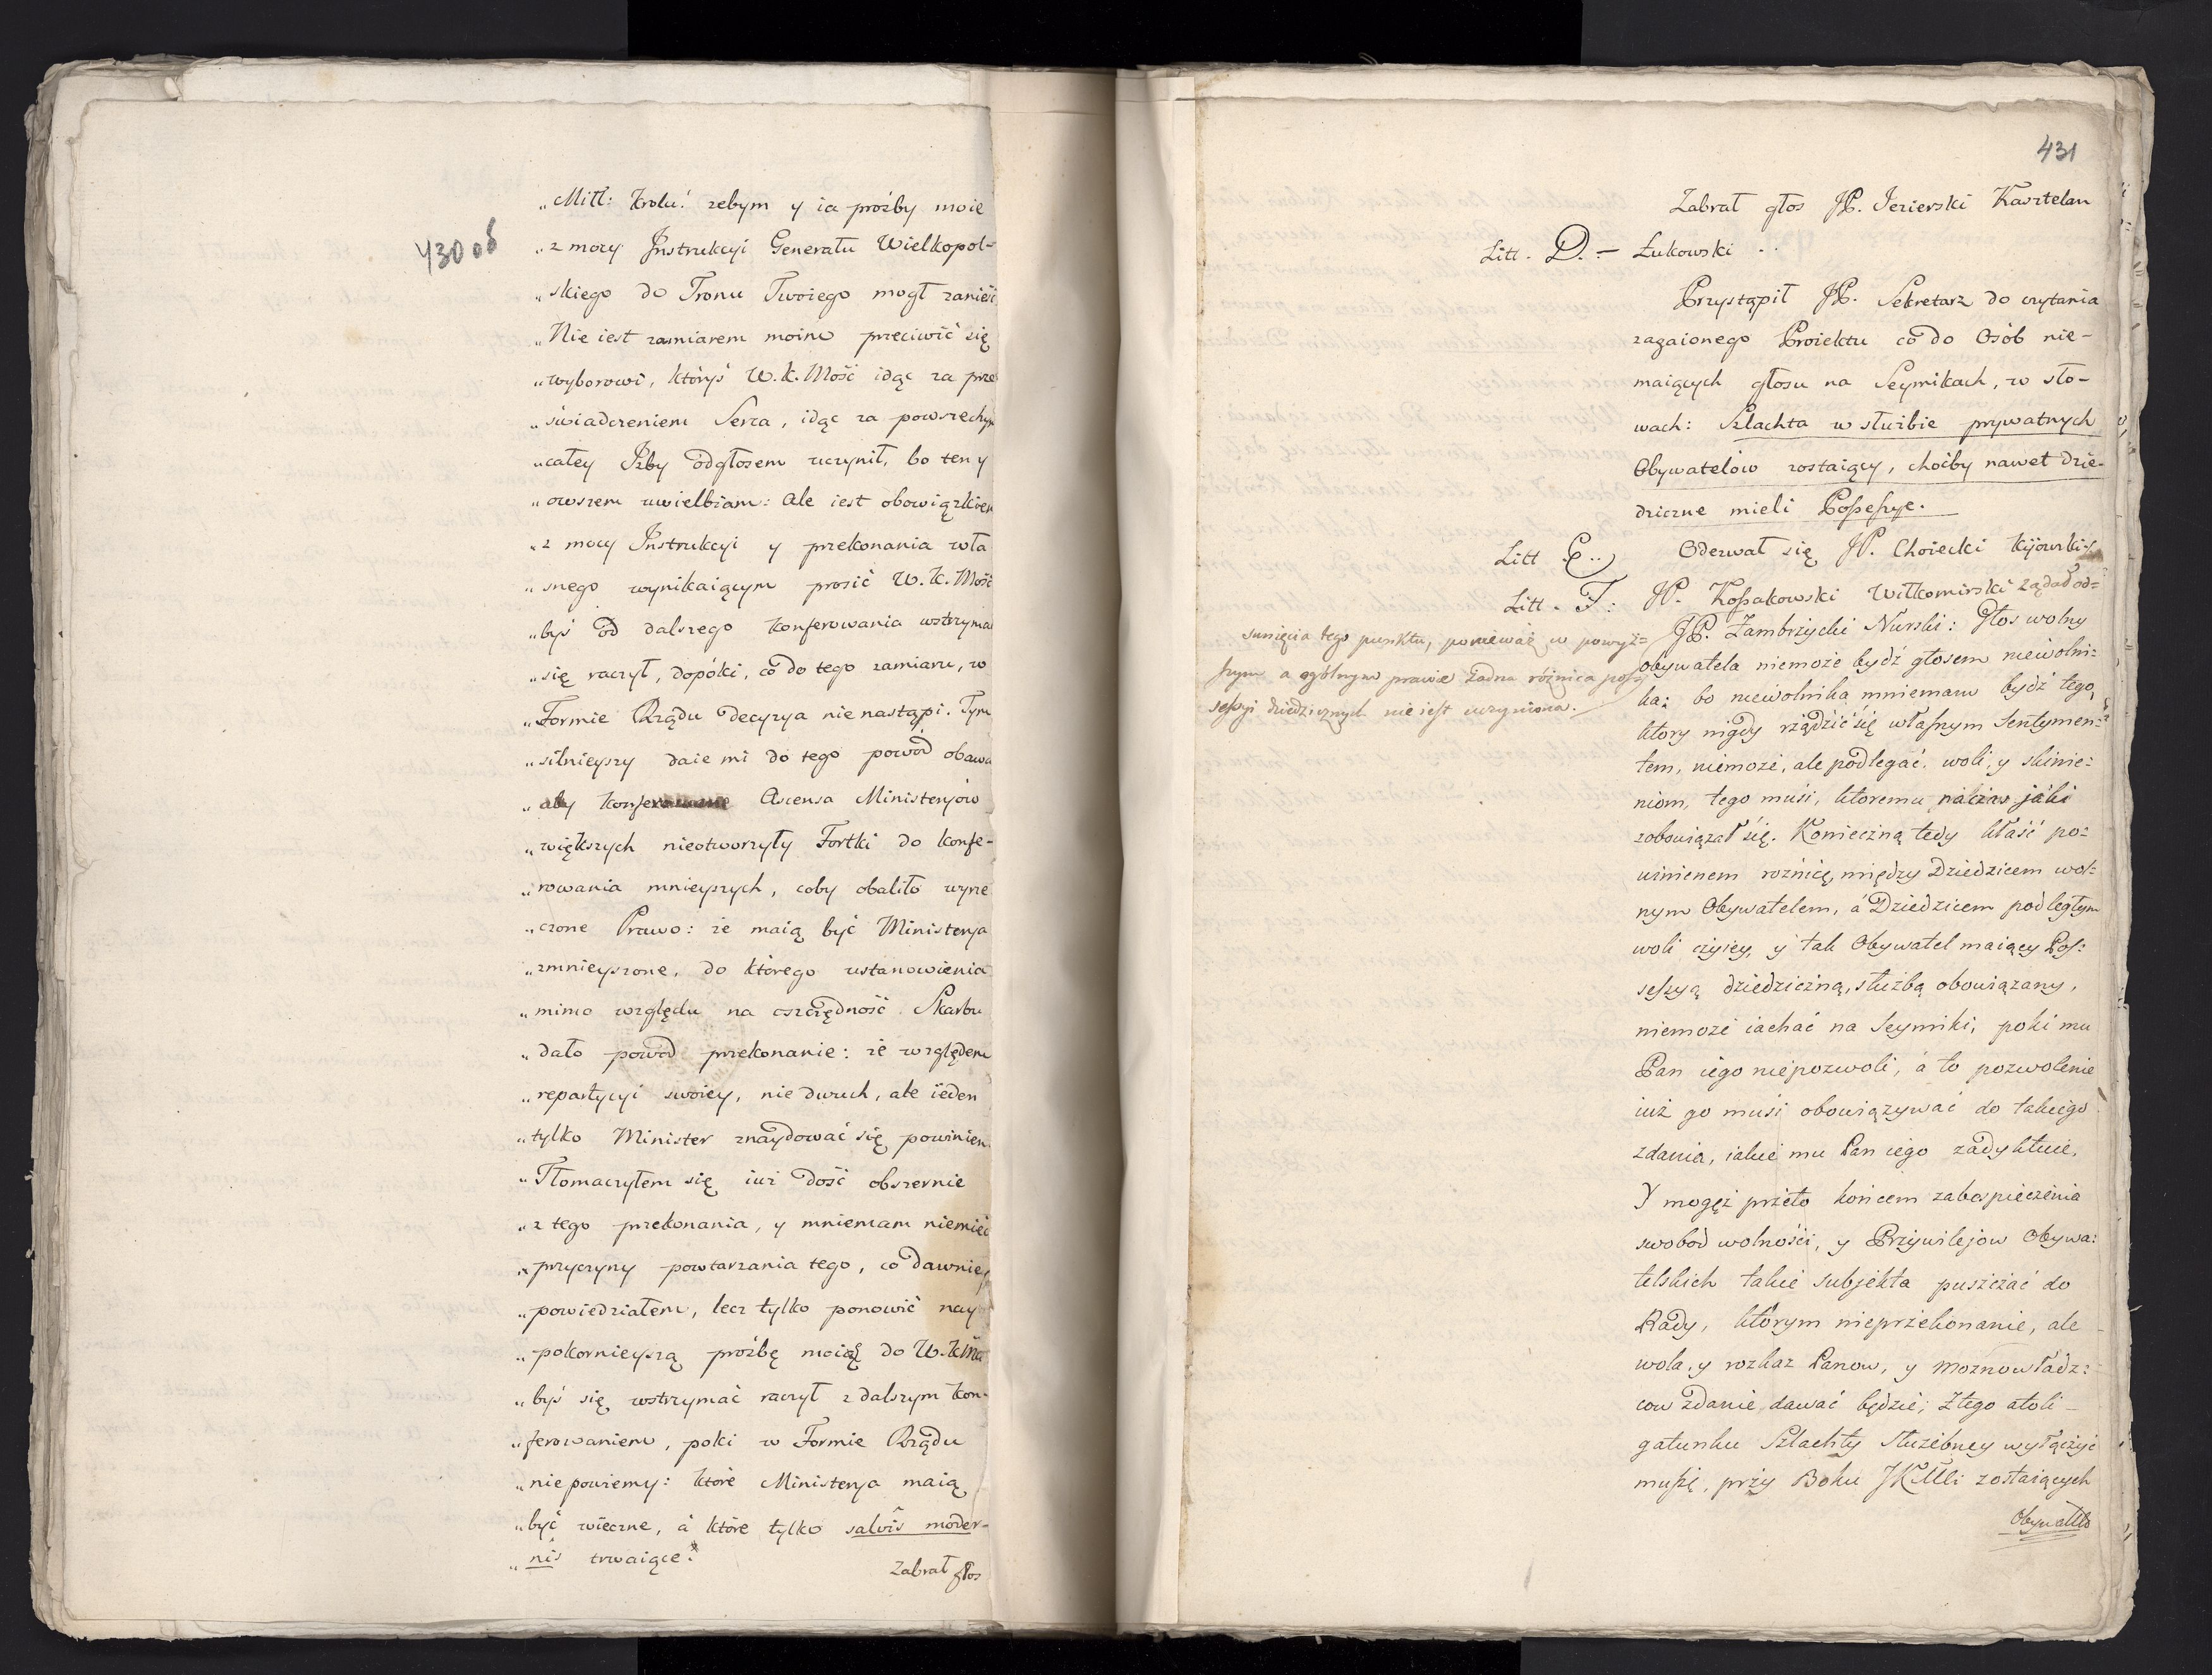 430 об
„Miłł: Krolu! zebym y ia proźby moie
„z mocy Instrukcyi Generału Wielkopol-
„skiego do Tronu Twoiego mogł zanieść
„Nie iest zamiarem moim przeciwić się
„wyborowi, któryś W. K. Mość idąc za prze
„świadczeniem Serca, idąc za powszechnym
„całey Izby odgłosem uczynił, bo ten y
„owszem uwielbiam: Ale iest obowiązkiem
„z mocy Instrukcyi y przekonania wła
„snego wynikaiącym prosić W. K. Mość
„byś od dalszego konferowania wstrzymać
„się raczył, dopóki, co do tego zamiaru, w
„Formie Rządu decyzya nie nastąpi. Tym
„silnieyszy daie mi do tego powód obawa
„aby Ascensa Ministeryów
„większych nieotworzyły Fortki do konfe-
„rowania mnieyszych, coby obaliło wyrze
„czone Prawo: że maią być Ministerya
„zmnieyszone, do którego ustanowienia
„mimo względu na oszczędność Skarbu
„dało powód przekonanie: że względem
„repartycyi swoiey, nie dwuch, ale ieden
„tylko Minister znaydować się powinien
„Tłomaczyłem się iuż dość obszernie
„z tego przekonania, y mniemam niemieć
„przyczyny powtarzania tego, co dawniey
„powiedziałem, lecz tylko ponowić nay
„pokornieyszą proźbę moią do W. K. Mci
„byś się wstrzymać raczył z dalszym kon-
„ferowaniem, poki w Formie Rządu
„nie powiemy: które Ministerya maią
„być wieczne, á które tylko salvis moder-
„nis trwaiące.
Zabrał głos
431
Zabrał głos JP. Jezierski Kasztelan
Litt. D. – Łukowski ..
Przystąpił JP. Sekretarz do czytania
zagaionego Proiektu co do Osób nie-
maiących głosu na Seymikach, w sło-
wach: Szlachta w służbie prywatnych
Obywatelów zostaiący, choćby nawet dzie-
dziczne mieli Possessye.
Litt E.. Odezwał się JP. Choiecki Kijowski
Litt. F: JP. Kossakowski Wiłkomirski żądał od=
sunięcia tego punktu, ponieważ w powyż=
szym a prawie żadna różnica possessyi
dziedzicznych nie iest uczyniona.
JP. Zambrzycki Nurski: Głos wolny
obywatela niemoże bydź głosem niewolni=
ka: bo niewolnika mniemam bydź tego,
ktory nigdy rządzić się własnym Sentymen=
tem, niemoże, ale podlegać woli, y skinie=
niom, tego musi, ktoremu na czas jaki
zobowiązał się. Konieczną tedy kłaść po=
winienem roznicę, między Dziedzicem wol=
nym Obywatelem, á Dziedzicem podległym
woli czyiey, y tak Obywatel maiący Pos=
sessyą dziedziczną, służbą obowiązany,
niemoże iachać na Seymiki, poki mu
Pan iego niepozwoli, á to pozwolenie
iuż go musi obowiązywać do takiego
zdania, iakie mu Pan iego zadyktuie.
Y mogęż przeto końcem zabespieczenia
swobod wolności, y Przywilejow Obywa=
telskich takie subjekta puszczać do
Rady, ktorym nieprzekonanie, ale
wola, y rozkaz Panow, y moznowładz=
cow zdanie dawać będzie; Z tego atoli
gatunku Szlachty służebney wyłączyć
muszę, przy Boku JKMci zostaiących
Obywatelo